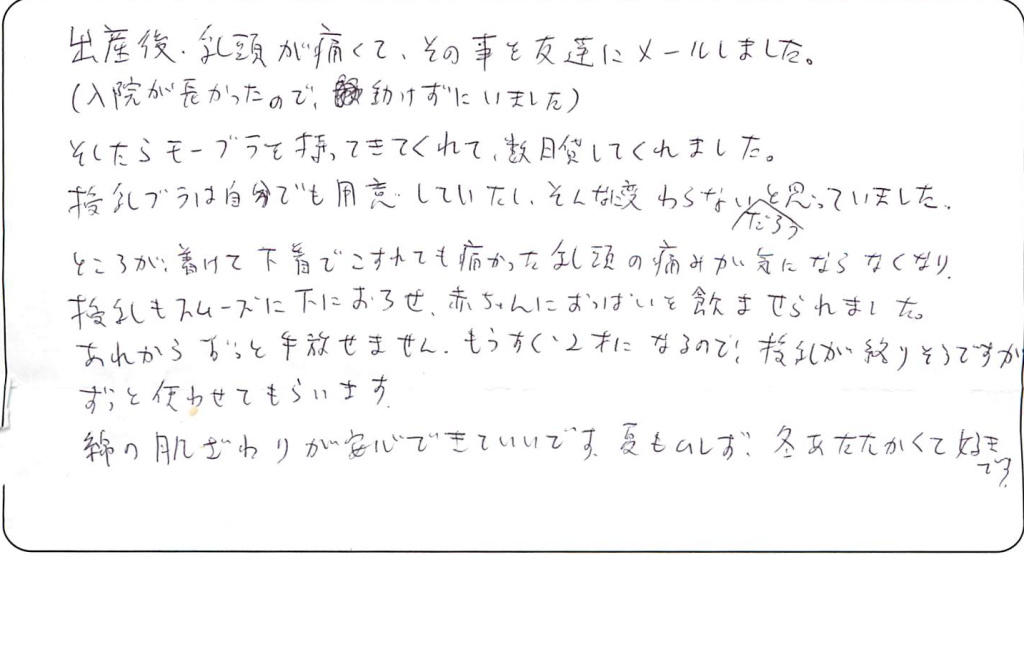 出産後、乳頭が痛くて、その事を友達にメールしました。
(入院が長かったので、動けずにいました)
そしたらモーブラを持ってきてくれて、数日貸してくれました。
授乳ブラは自分でも用意していたし、そんなに変わらないだろうと思っていました。
ところが、着けて下着でこすれても痛かった乳頭の痛みが気にならなくなり、
授乳もスムーズに下におろせ、赤ちゃんにおっぱいを飲ませられました。
あれからずっと手放せません。もうすぐ2才になるので、授乳が終りそうですが
ずっと使わせてもらいます。
綿の肌ざわりが安心できていいです。夏もムレず、冬あたたかくて好きです。